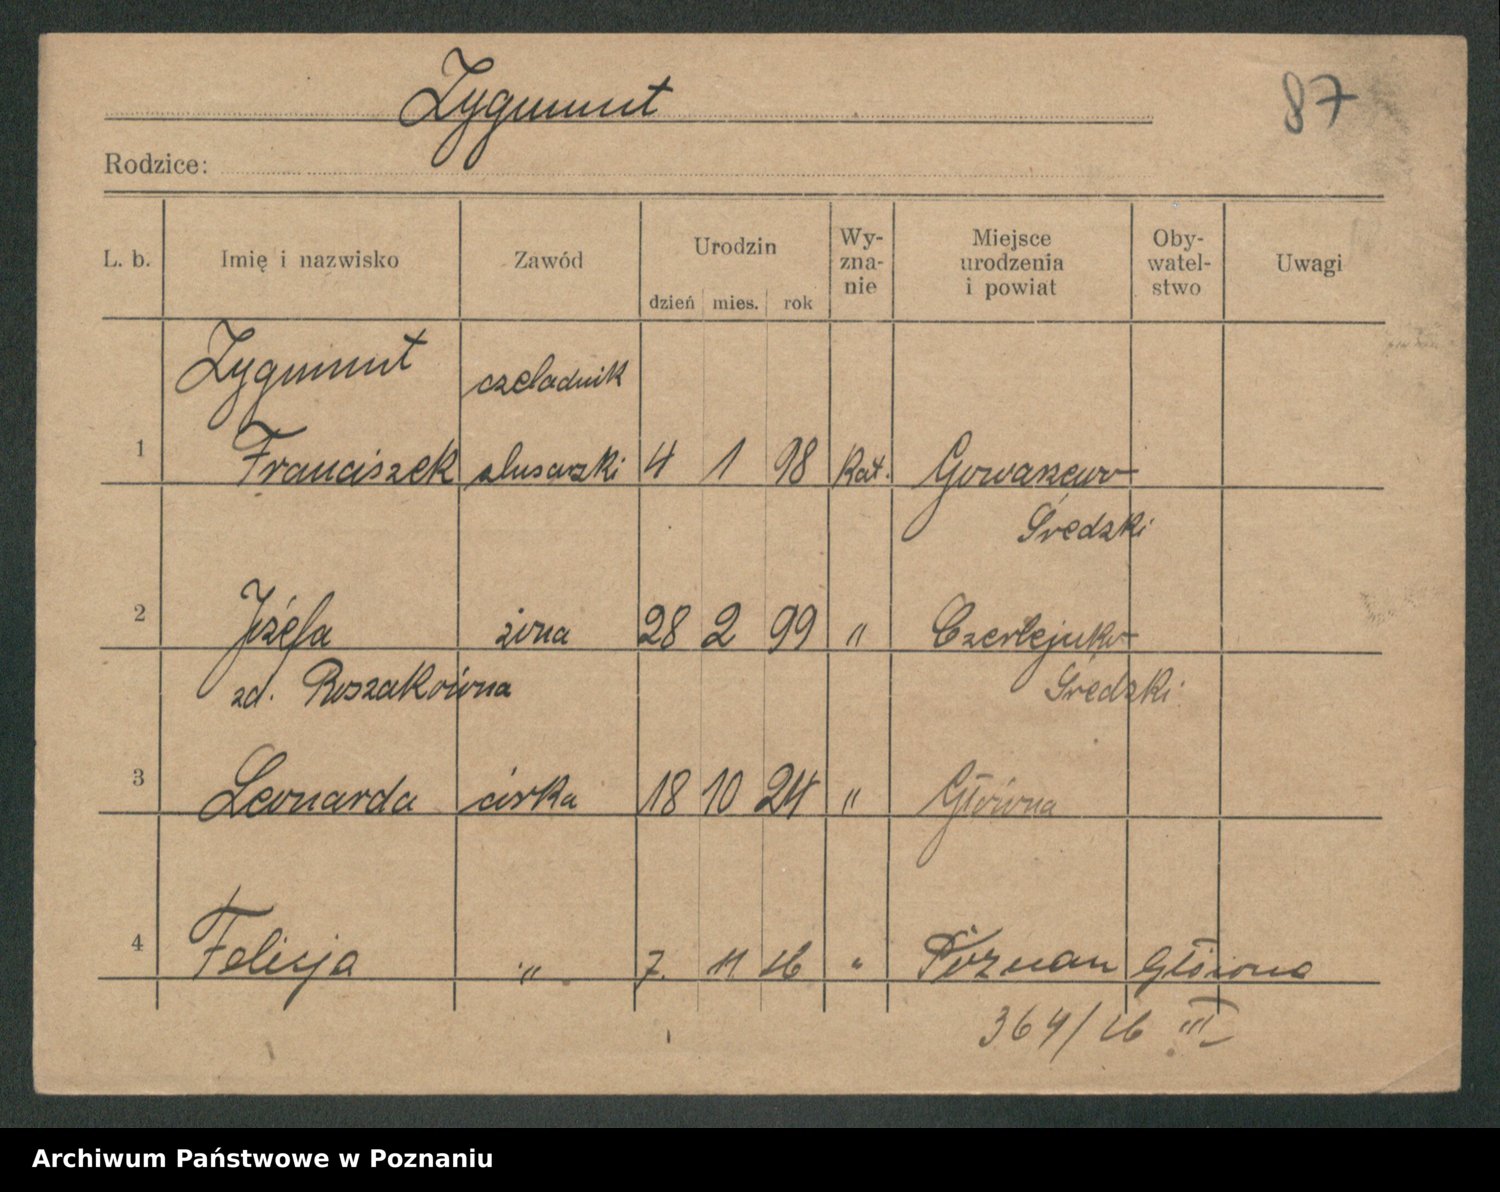 Zygmunt
87
Rodzice:
L. b. Imię i nazwisko Zawód Urodzin dzień mies. rok Wy-zna-nie Miejsce urodzenia i powiat Oby-watel-stwo Uwagi
Zygmunt czeladnik
1 Franciszek ślusarski 4 1 98 kat. Gowarzewo
Średzki
2 Józefa żona 28 2 99 " Czerlejnko
zd. Roszakówna Średzki
3 Leonarda córka 18 10 24 " Główna
4 Felicja " 7. 11. 26 " Poznań Główna
364/26 III
Archiwum Państwowe w Poznaniu